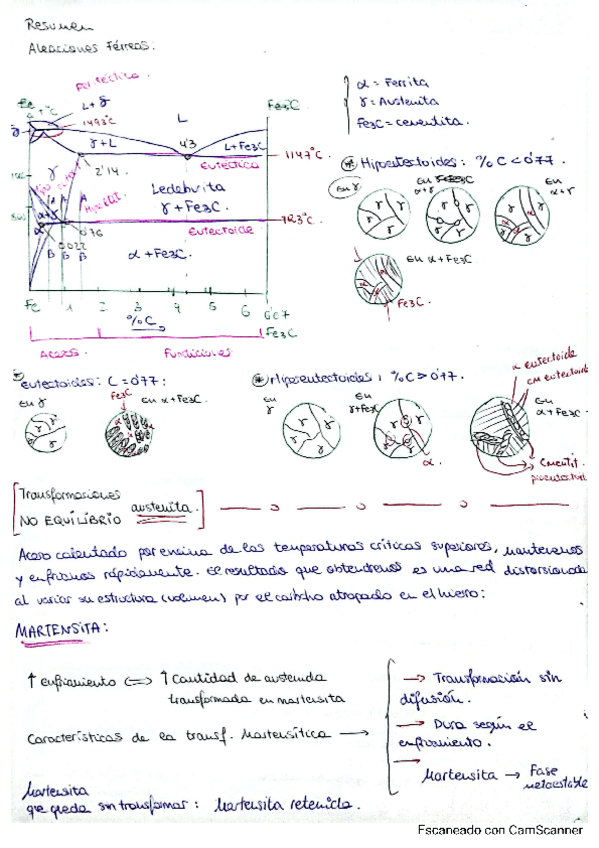 Resumen
Aleaciones Férreas:
Peritéctica
Fe
T °C
L+γ
1493°C
L
Fe3C
γ+L
4'3
L+Fe3C
1147°C
Eutéctica
2'14
γ
Ledeburita
γ+Fe3C
723°C
Eutectoide
α+γ
α
0'76
0'022
α+Fe3C
B B B
Fe 1 2 3 4 5 6 6'67
%C
Fe3C
Aceros
Fundiciones
α = Ferrita
γ = Austenita
Fe3C = cementita.
* Hipoeutectoides: %C < 0'77.
en γ
en α+γ
en α+γ
γ
α
en α+Fe3C
Fe3C.
* eutectoides: C = 0'77:
en γ
Fe3C
en α+Fe3C.
* Hipereutectoides, %C > 0'77.
en γ
en γ+Fe3C
α.
α eutectoide
cm eutectoide
en α+Fe3C
Cmentit.
proeutectoid
[Transformaciones
NO EQUILIBRIO austenita.]
Acero calentado por encima de las temperaturas críticas superiores, mantenemos
y enfriamos rápidamente. El resultado que obtendremos es una red distorsionada
al variar su estructura (volumen) por el carbono atrapado en el hierro:
MARTENSITA:
↑ enfriamiento ⟺ ↑ Cantidad de austenita
transformada en martensita
Características de la transf. Martensítica →
→ Transformación sin
difusión.
→ Dura según el
enfriamiento.
→ Martensita → Fase
metaestable
Martensita
que queda sin transformar: Martensita retenida.
Escaneado con CamScanner